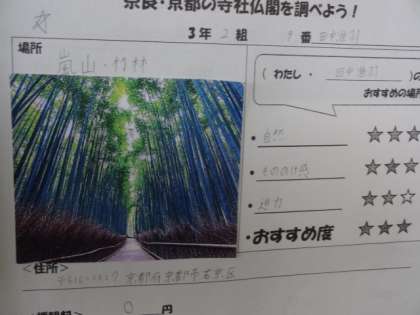 奈良・京都の寺社仏閣を調べよう!
3年 2 組 9 番
場所
嵐山・竹林
(わたし・
)の
おすすめの場所
・自然 ★★★
・もののけ感 ★★★
・迫力 ★★☆
・おすすめ度 ★★★
<住所>
京都府京都市右京区
0 円